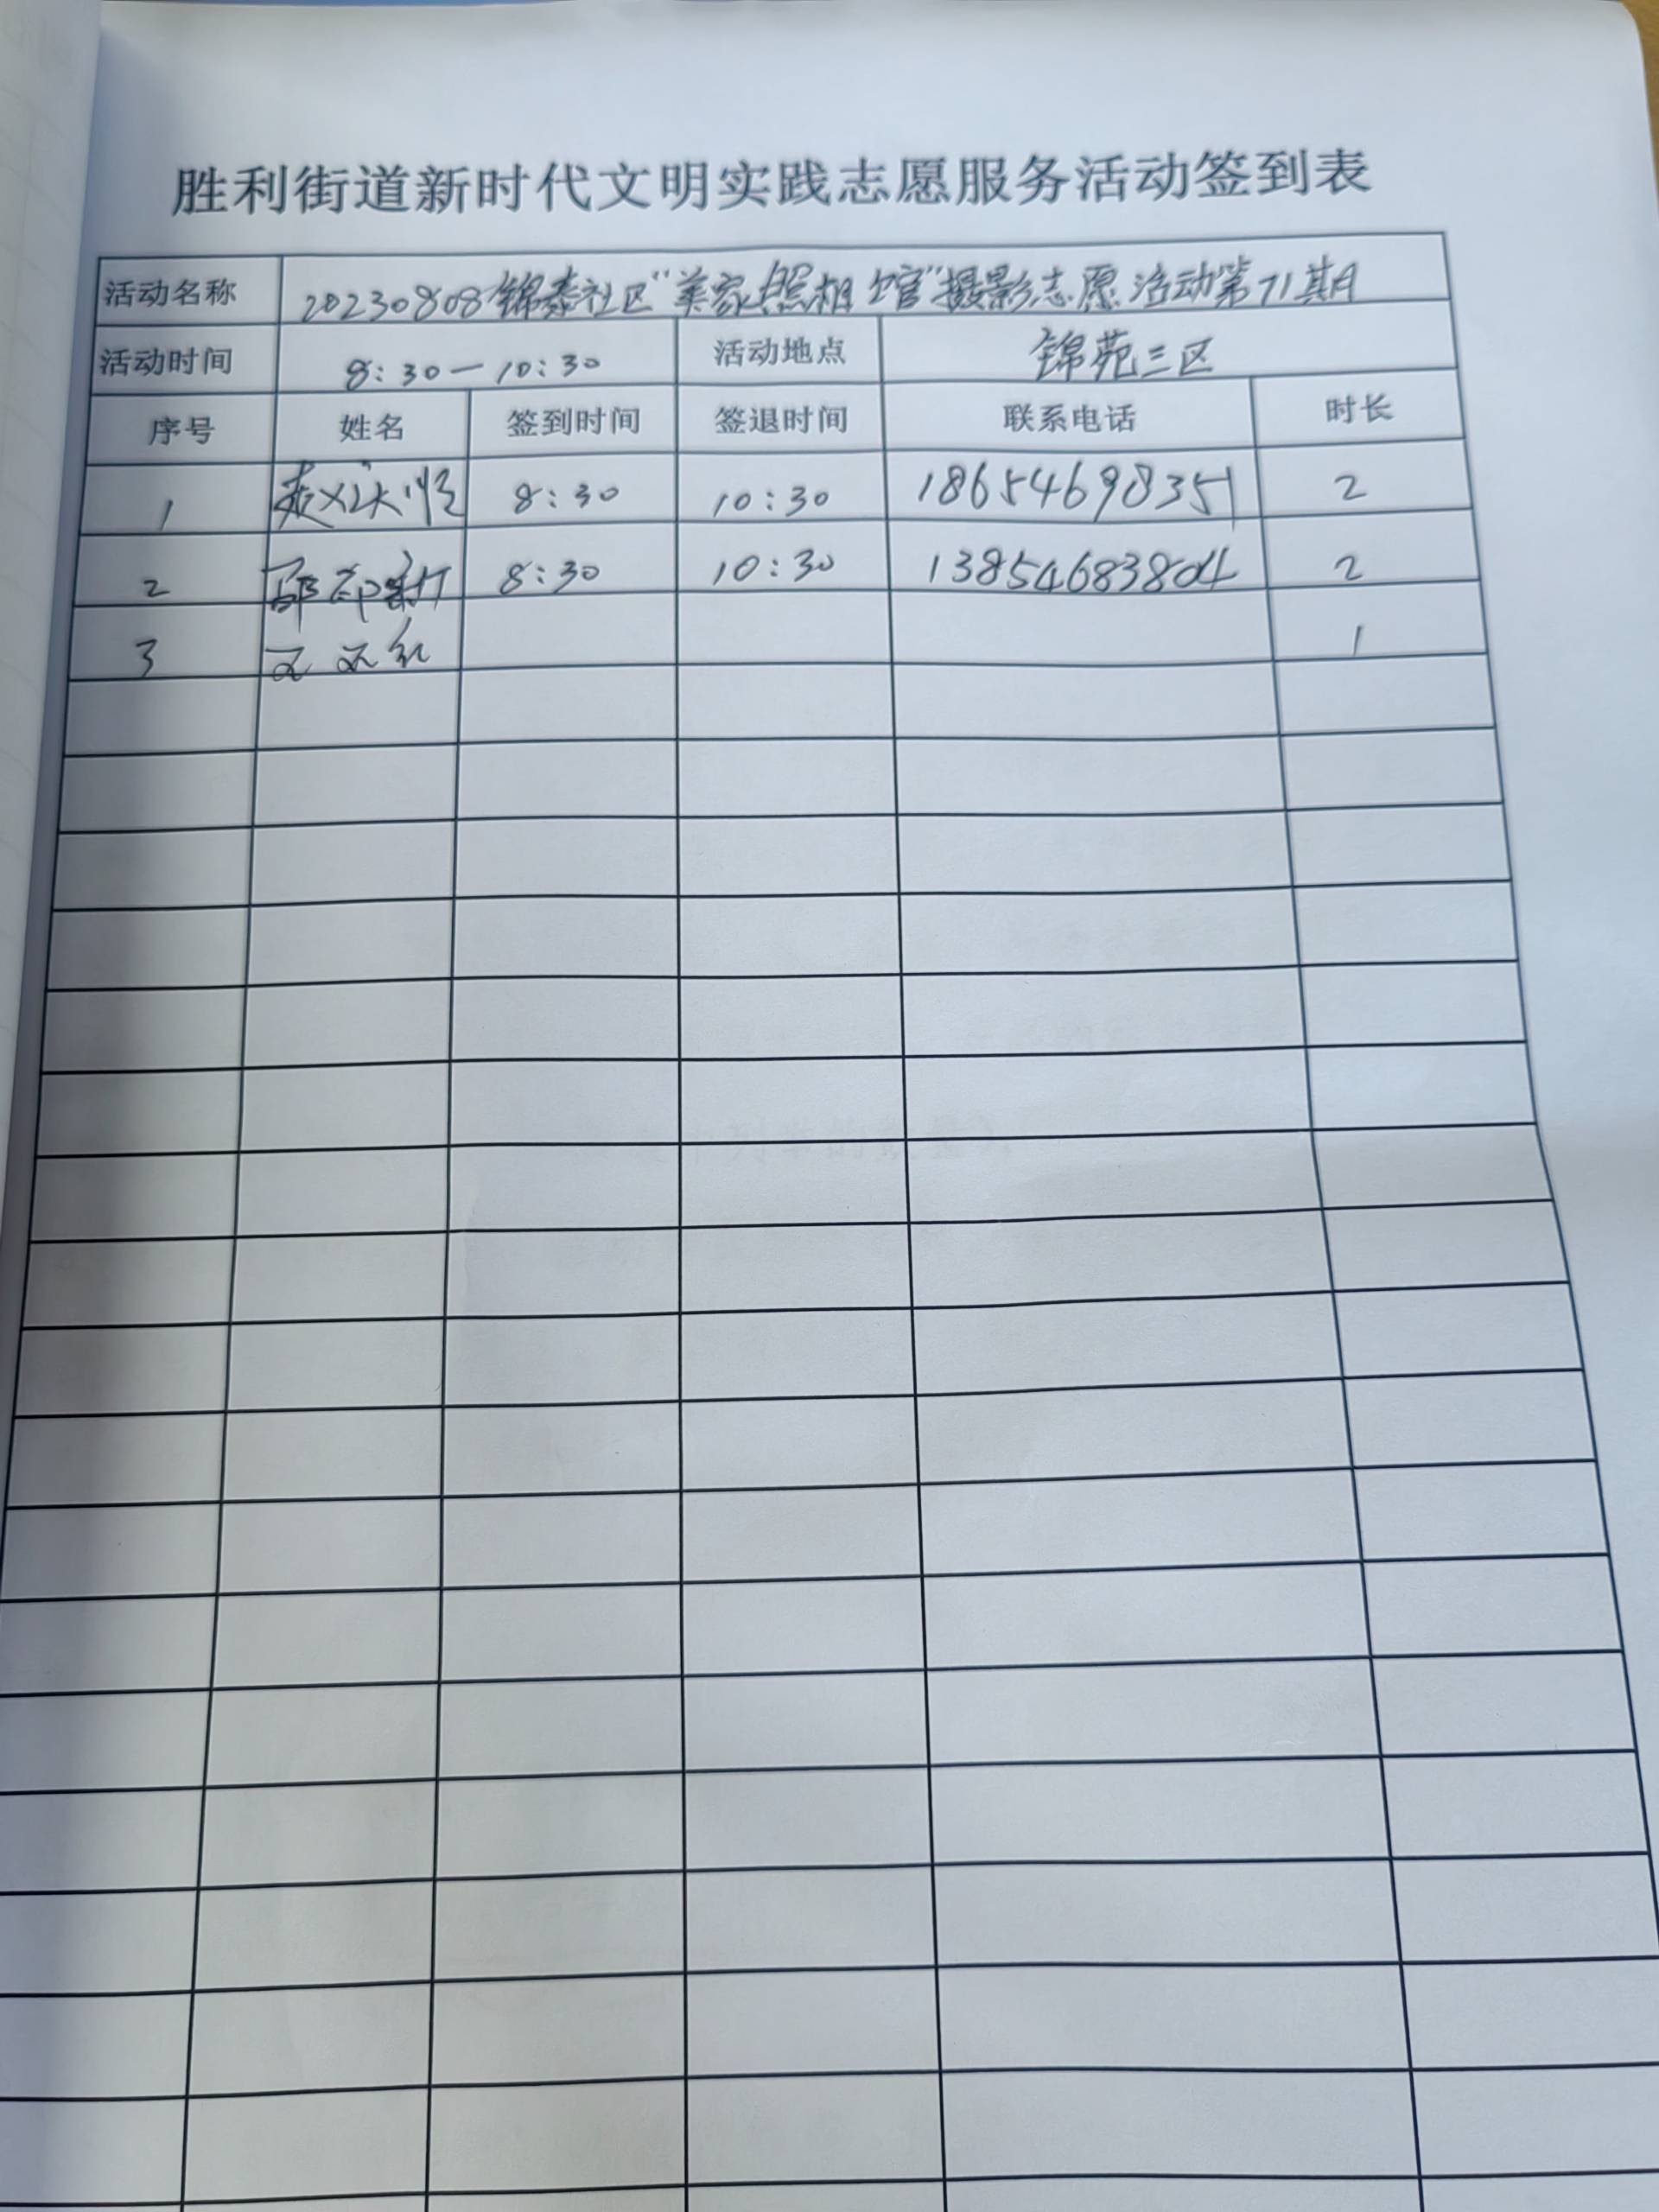 胜利街道新时代文明实践志愿服务活动签到表
活动名称 20230808锦泰社区"美家照相馆"摄影志愿活动第71期
活动时间 8:30—10:30 活动地点 锦苑三区
序号 姓名 签到时间 签退时间 联系电话 时长
1 8:30 10:30 18654698351 2
2 8:30 10:30 13854683804 2
3 1